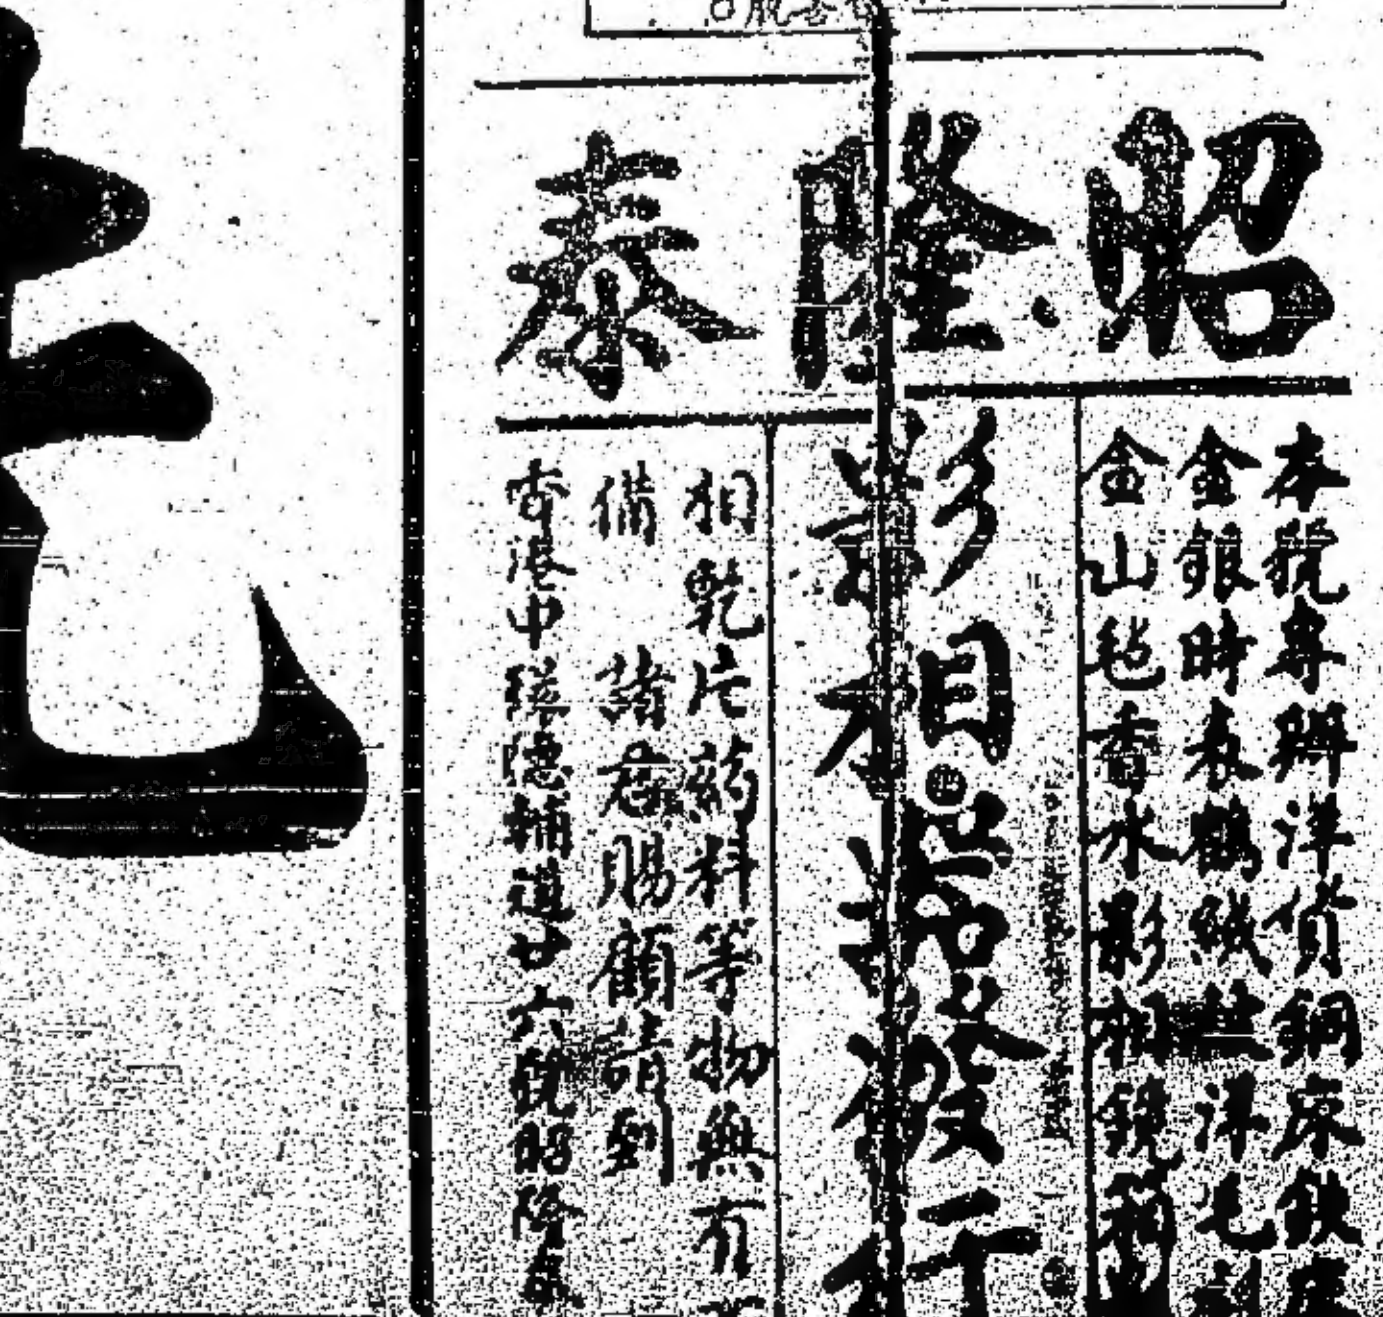 昭隆泰
本號專辦洋貨銅床鉄床
金銀時表鶴絨 洋毛
金山毡香水影相鏡箱
影相 發行
相乾片葯料等物無有
備 諸君賜顧請到
香港中環德輔道廿六號昭隆泰